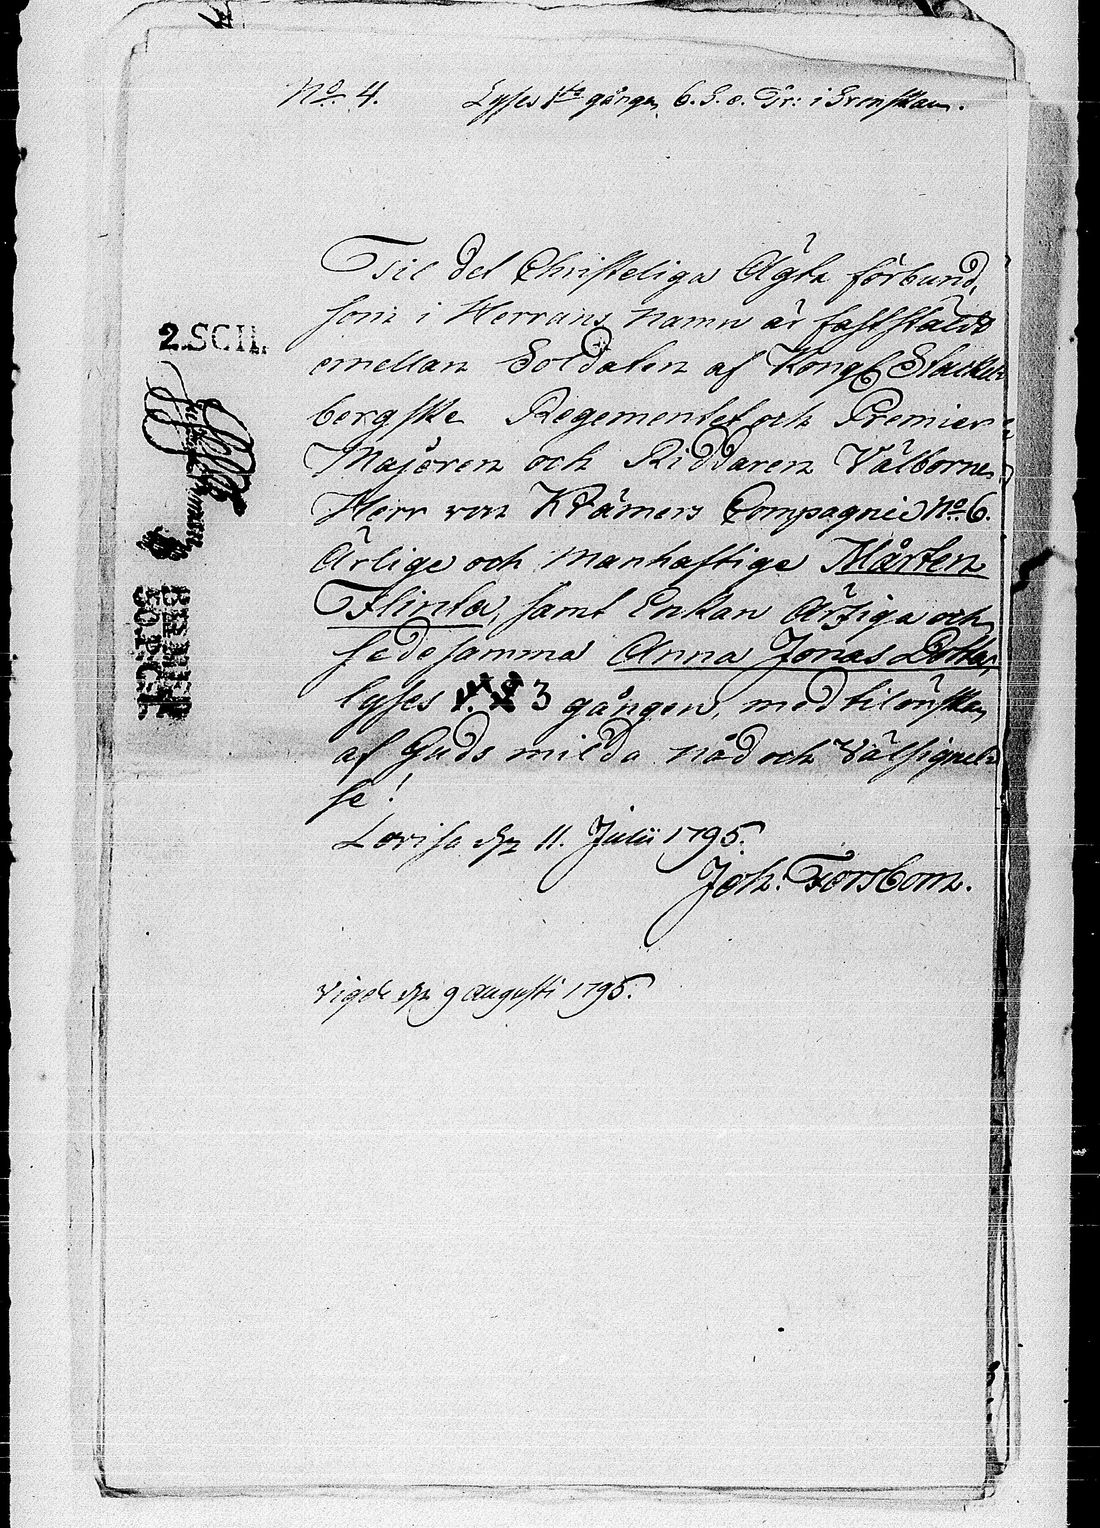 No. 4. Lyses 1sta gången 6. S. e. Tr: i Svenskan.
Til det Christeliga Ägta förbund,
som i Herrans namn är fastställdt
emellan Soldaten af Kongl. Stackel-
bergske Regementet och Premier-
Majoren och Riddaren Välborne
Herr von Kræmers Compagnie No. 6.
Ärlige och Manhaftige Mårten
Flinta, samt Enkan Ärliga och
sedesamma Anna Jonas Dotter,
lyses 3 gången, med tilönskan
af Guds milda nåd och Välsignel-
se!
Lovisa den 11. Julii 1795.
Joh: Forsbom.
Vigde den 9 Augusti 1795.
2.SCIL.